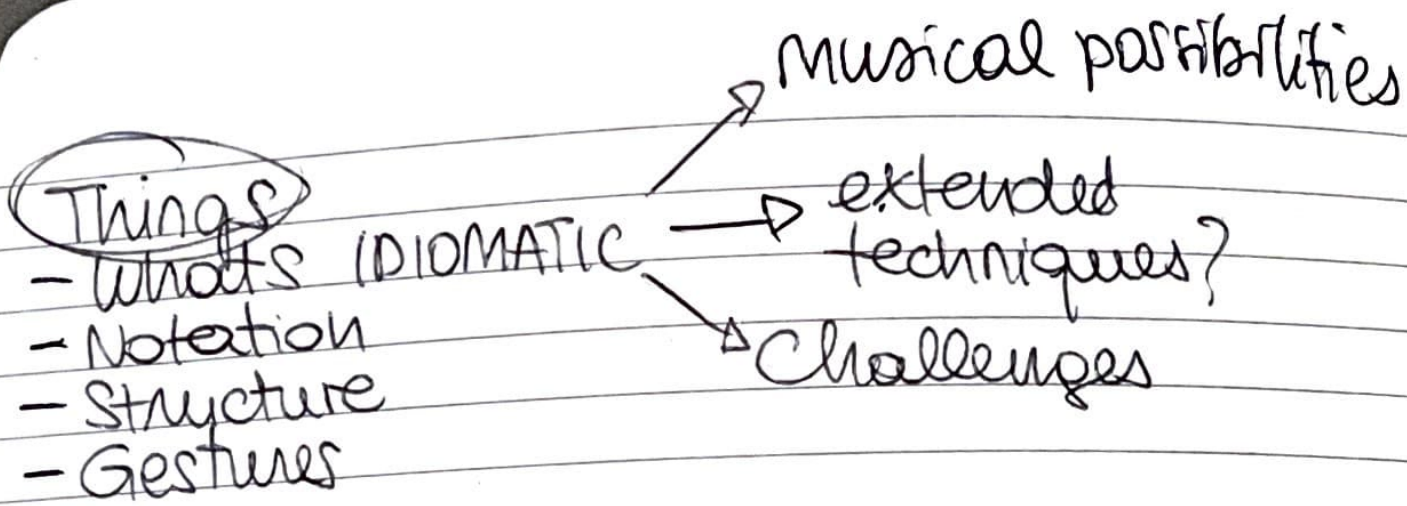 Things
- What's IDIOMATIC
- Notation
- Structure
- Gestures
musical possibilities
extended
techniques?
Challenges